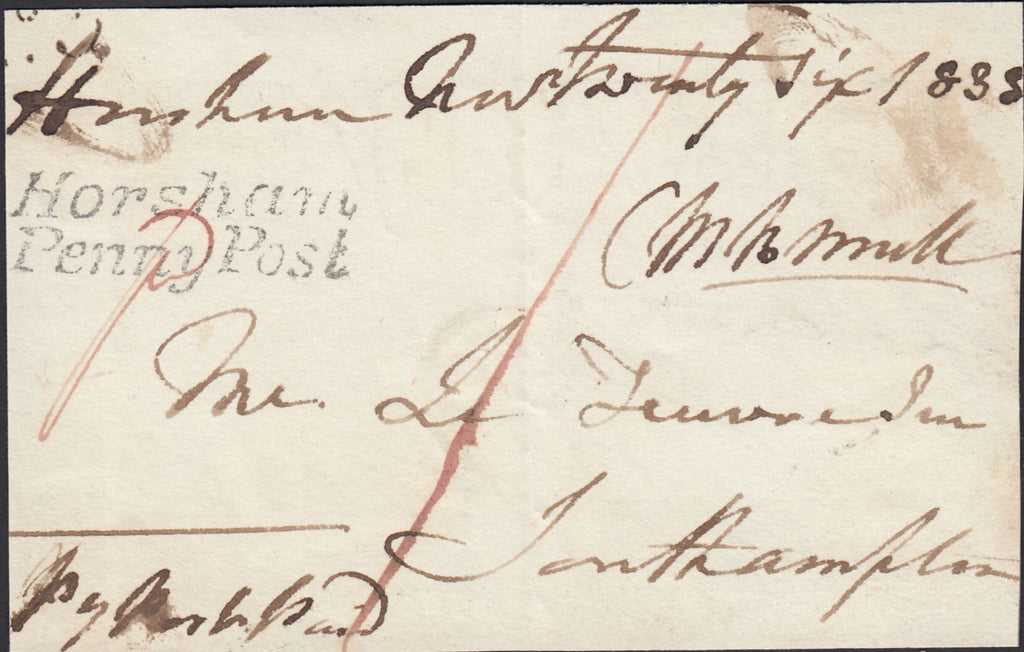 Horsham Nov Twenty Six 1838
Horsham
Penny Post
Mr. Le Feuvre Jun
Southampton
Py Post Paid